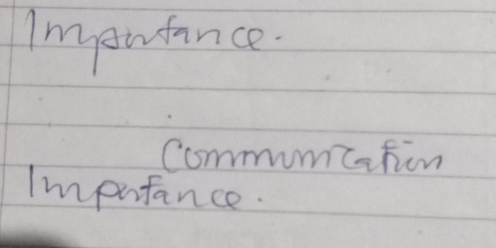 Importance.
Communication
Importance.